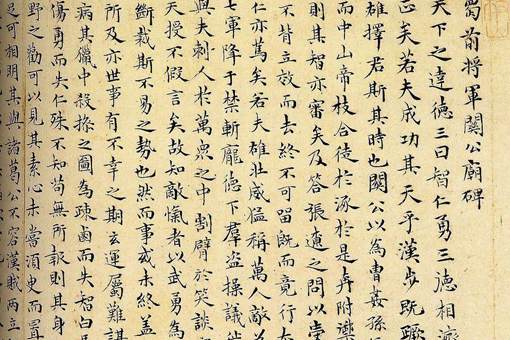 蜀前將軍關公廟碑
天下之達德三曰智仁勇三德相濟
矣若夫成功其天乎漢步既蹶
雄擇君斯其時也關公以為曹姦孫
而中山帝枝合徒於涿於是奔附禦
則其智亦審矣及答張遼之問以嘗
不背立效而去終不可留既而竟行
仁亦篤矣若夫雄壯威猛稱萬人敵
七軍降于禁斬龐德下群盜操議
與夫刺人於萬眾之中割臂於笑談
天授不假言矣故知敵愾者以武勇為
斷裁斯不易之勢也然而事或未終蓋
所及亦世事有不幸之期玄運屬難諶
病其獵中殺操之圖為疎鹵而失智白
傷勇而失仁殊不知苟無所報則其身
野之勸可以見其素心未嘗須臾而置
可相明其與諸葛公不容漢賊兩立